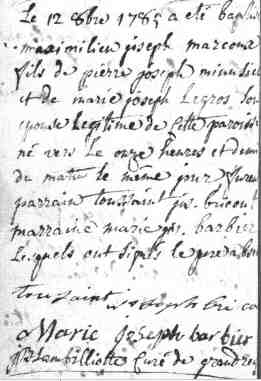 Le 12 8bre 1785 a été baptis
maximilien joseph marcoux
fils de pierre joseph
et de marie joseph Legros son
epouse Legitime de cette paroiss
né vers Le onze heures et demi
du matin le même jour furen
parrain toussaint jos. bricout
marraine marie jos. barbier
Lesquels ont signés le pere
toussaint joseph bri co
Marie Joseph barbier
Lambilliotte Curé de